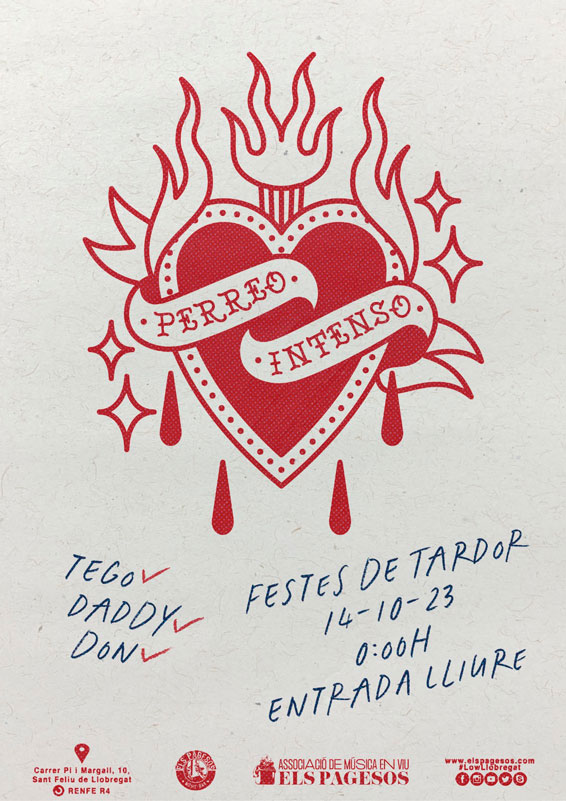 PERREO
INTENSO
TEGO
DADDY
DON
FESTES DE TARDOR
14-10-23
0:00H
ENTRADA LLIURE
Carrer Pi i Margall, 10,
Sant Feliu de Llobregat
RENFE R4
ELS PAGESOS
ASSOCIACIÓ DE MÚSICA EN VIU
ELS PAGESOS
www.elspagesos.com
#LowLlobregat